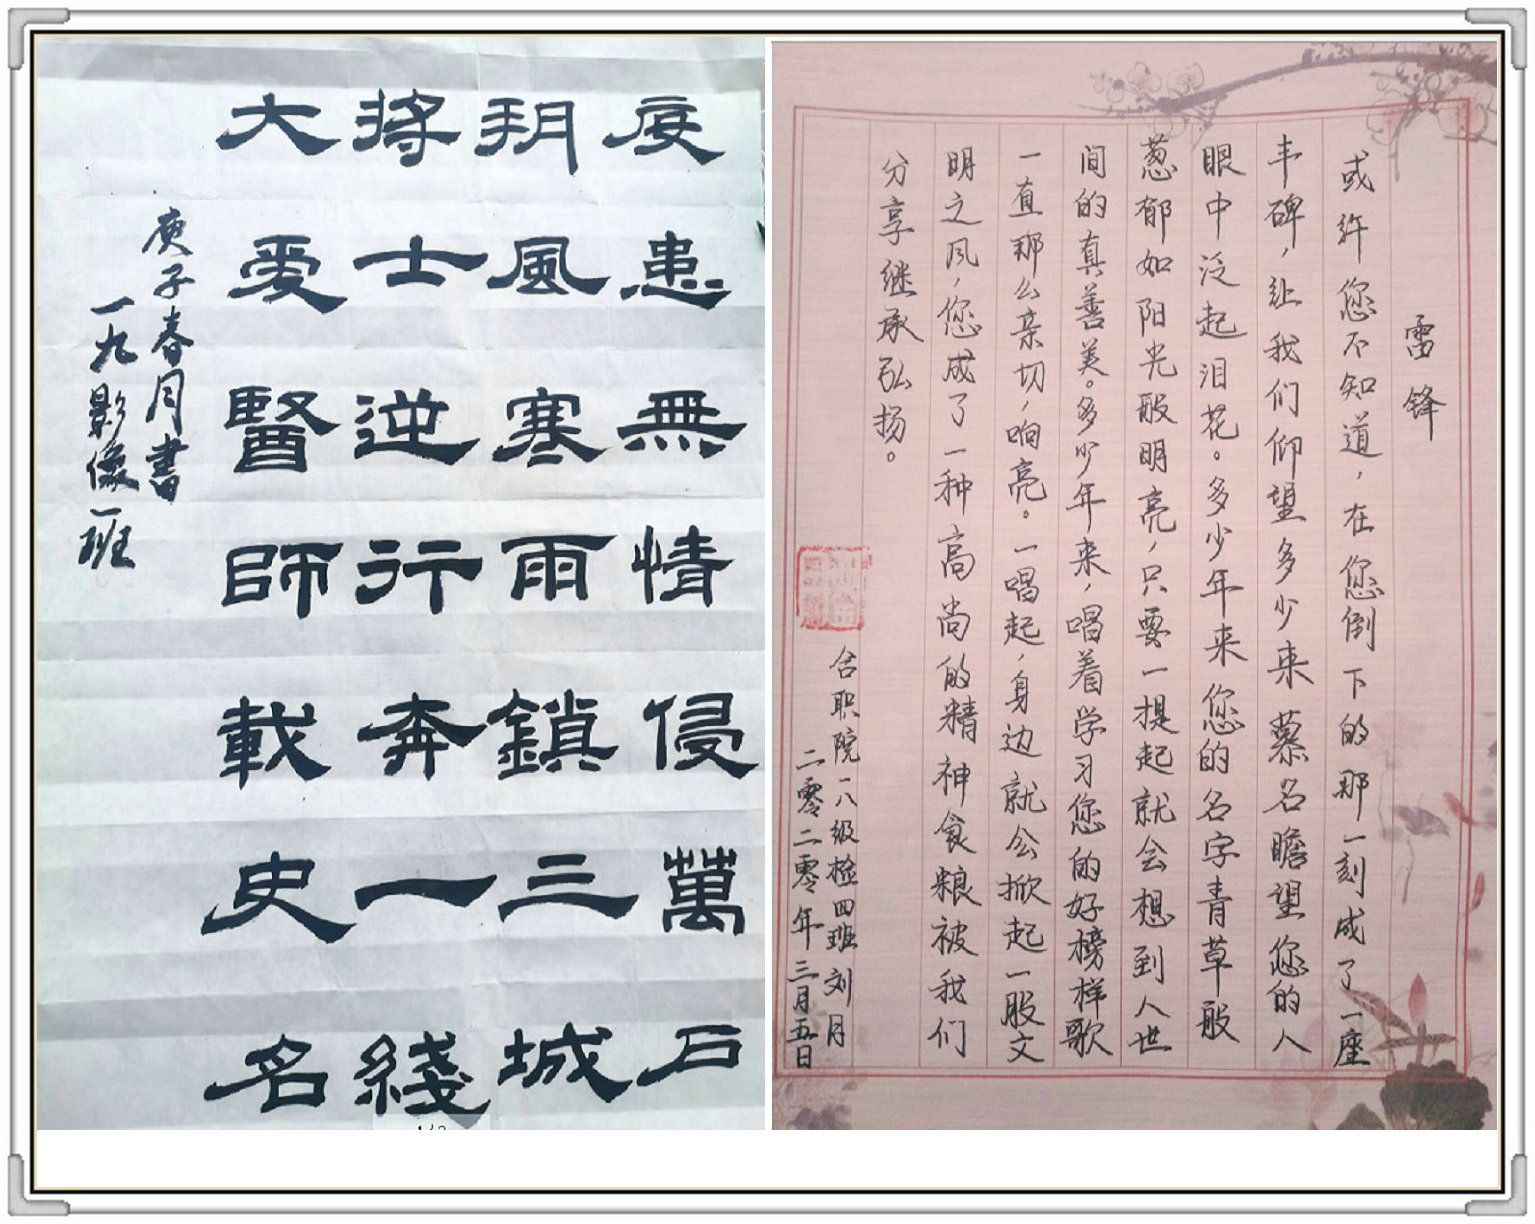 疫患無情侵萬戸
朔風寒雨鎮三城
將士逆行奔一綫
大愛醫師載史名
庚子春月書
一九影像一班
雷锋
或许您不知道，在您倒下的那一刻成了一座
丰碑，让我们仰望多少来慕名瞻望您的人
眼中泛起泪花。多少年来您的名字青草般
葱郁如阳光般明亮，只要一提起就会想到人世
间的真善美。多少年来，唱着学习您的好榜样歌
一直那么亲切，响亮。一唱起，身边就会掀起一股文
明之风，您成了一种高尚的精神食粮被我们
分享继承弘扬。
合职院一八级检四班刘月
二零二零年三月五日